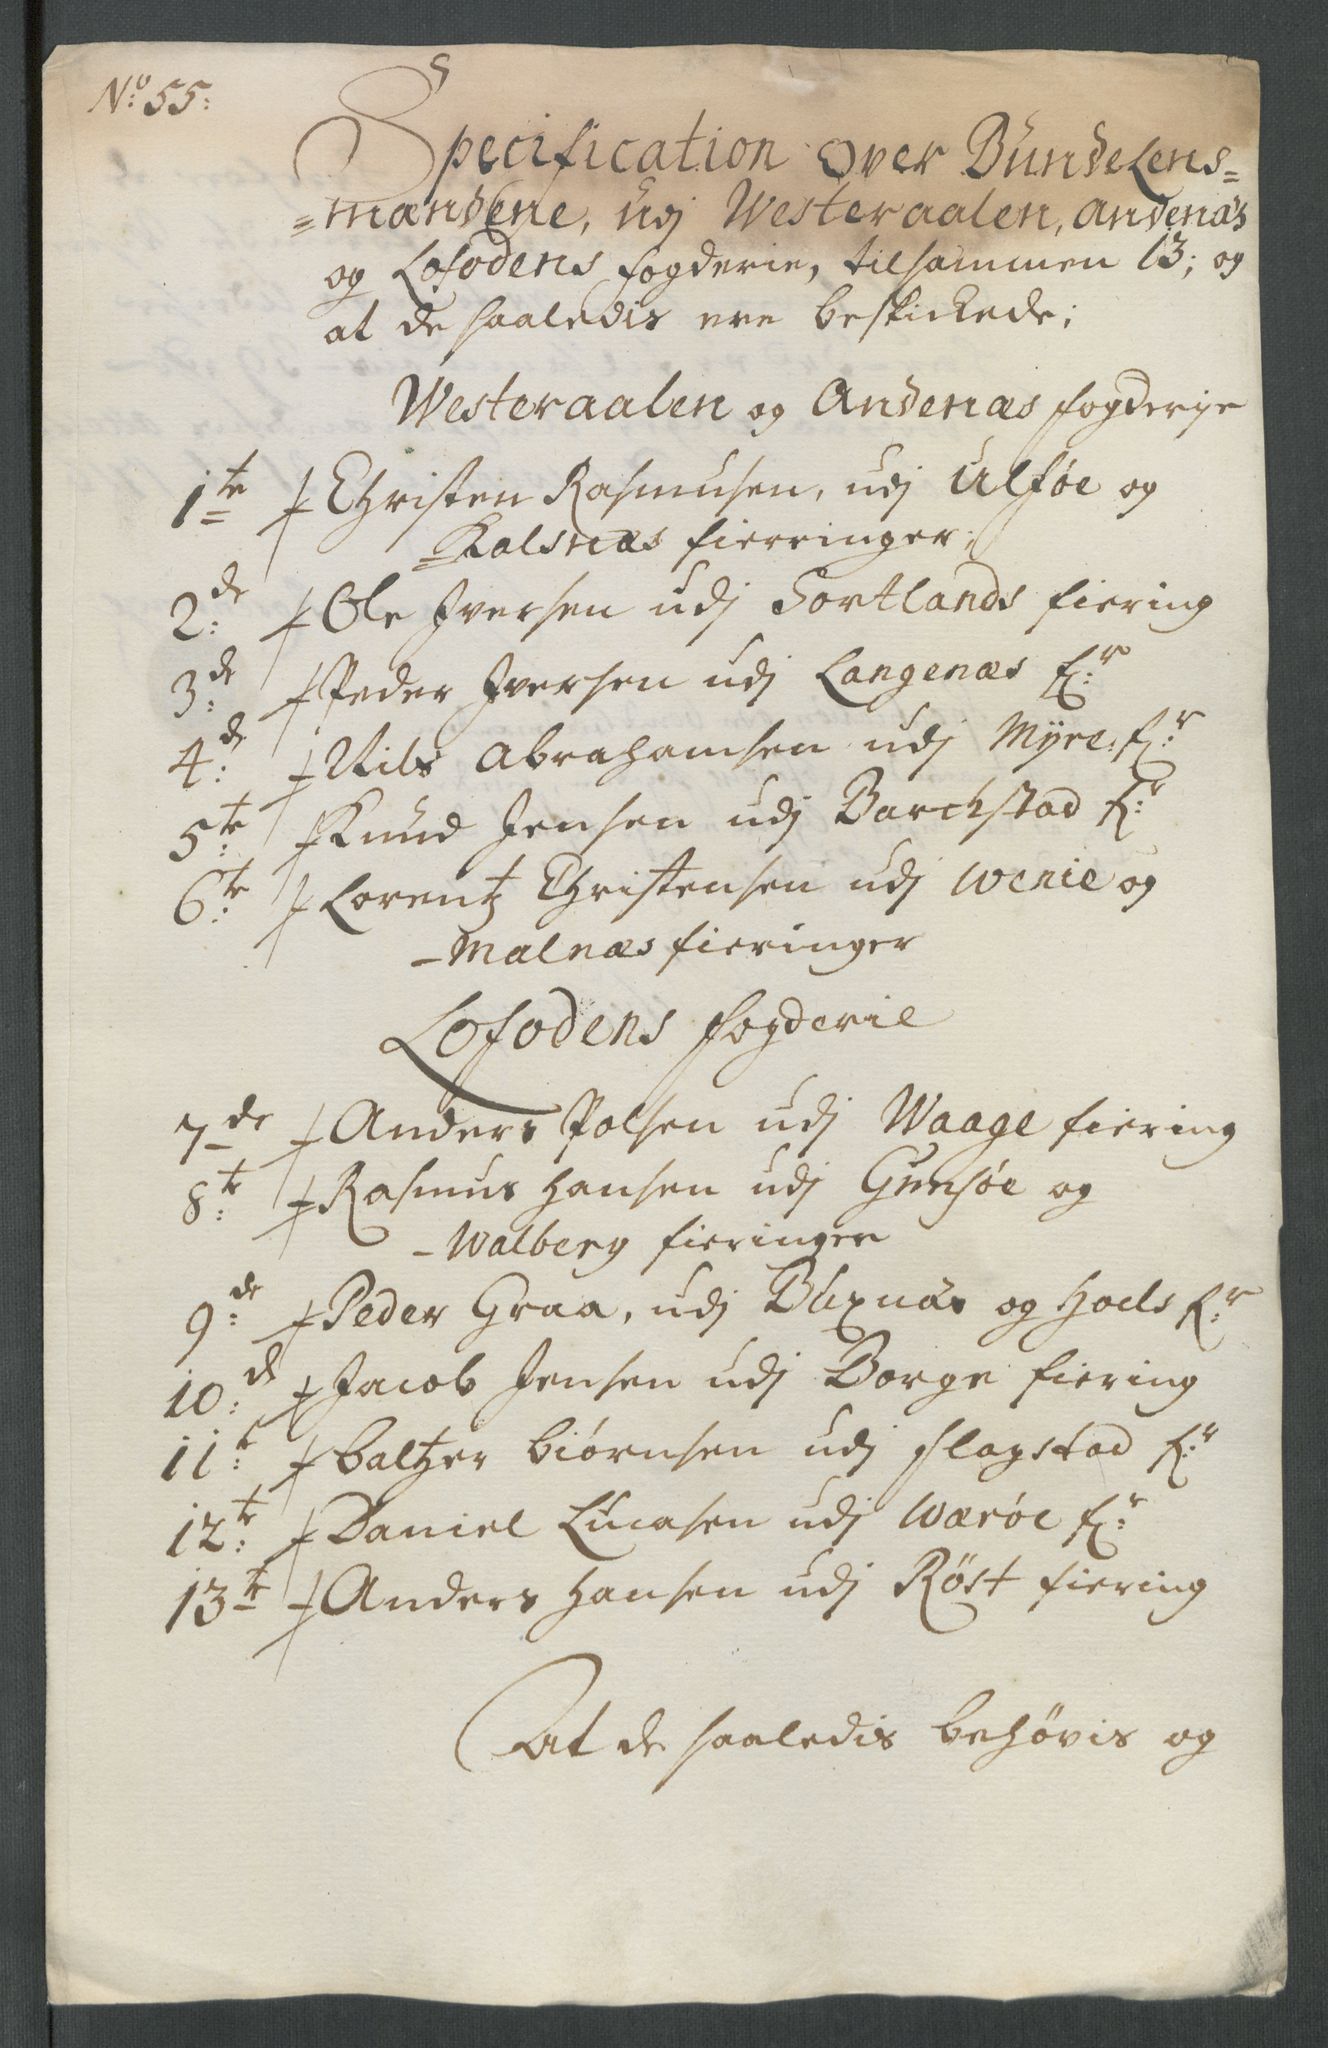 No: 55:
Specification Over Bundelens=
=mændene, udj Westeraalen, Andenæs
og Lofodens fogderie, tilsammen 13; og
at de saaledis ere beskickede;
Westeraalen og Andenæs fogderje
1te Christen Rasmusen, udj Ulføe og
=Kalsnæs fierringer.
2:de Ole Jversen udj Sortlands fiering
3:de Peder Jversen udj Langenæs f:r
4:de Nils Abrahamsen udj Myre f:r
5:te Knud Jensen udj Barchstad f:r
6:te Lorentz Christensen udj Wenie og
-Malnæs fieringer
Lofodens fogderie
7de Anders Polsen udj Waage fiering
8:te Rasmus Hansen udj Gimsøe og
-Walberg fieringer
9:de Peder Graa, udj Buxnæs og Hoels f:r
10:de Jacob Jensen udj Borge fiering
11:te Baltzer Biørnsen udj flagstad f:r
12:te Daniel Lucasen udj Wærøe f:r
13te Anders Hansen udj Røst fiering
At de saaledis behøvis og